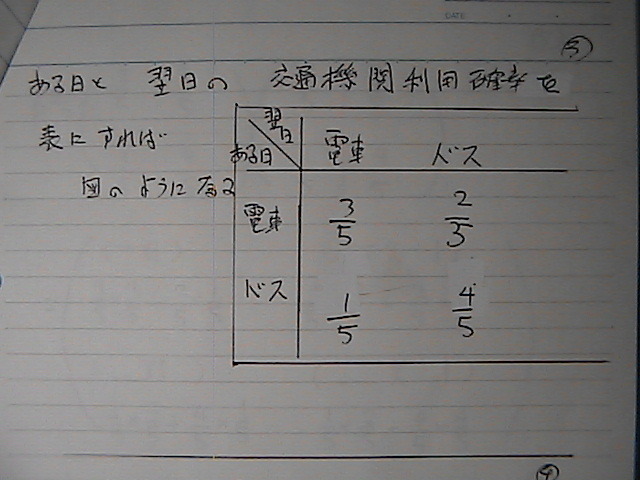 DATE
③
ある日と 翌日の 交通機関利用確率を
表にすれば
図のようになる
翌日
ある日 電車 バス
電車 3/5 2/5
バス 1/5 4/5
④